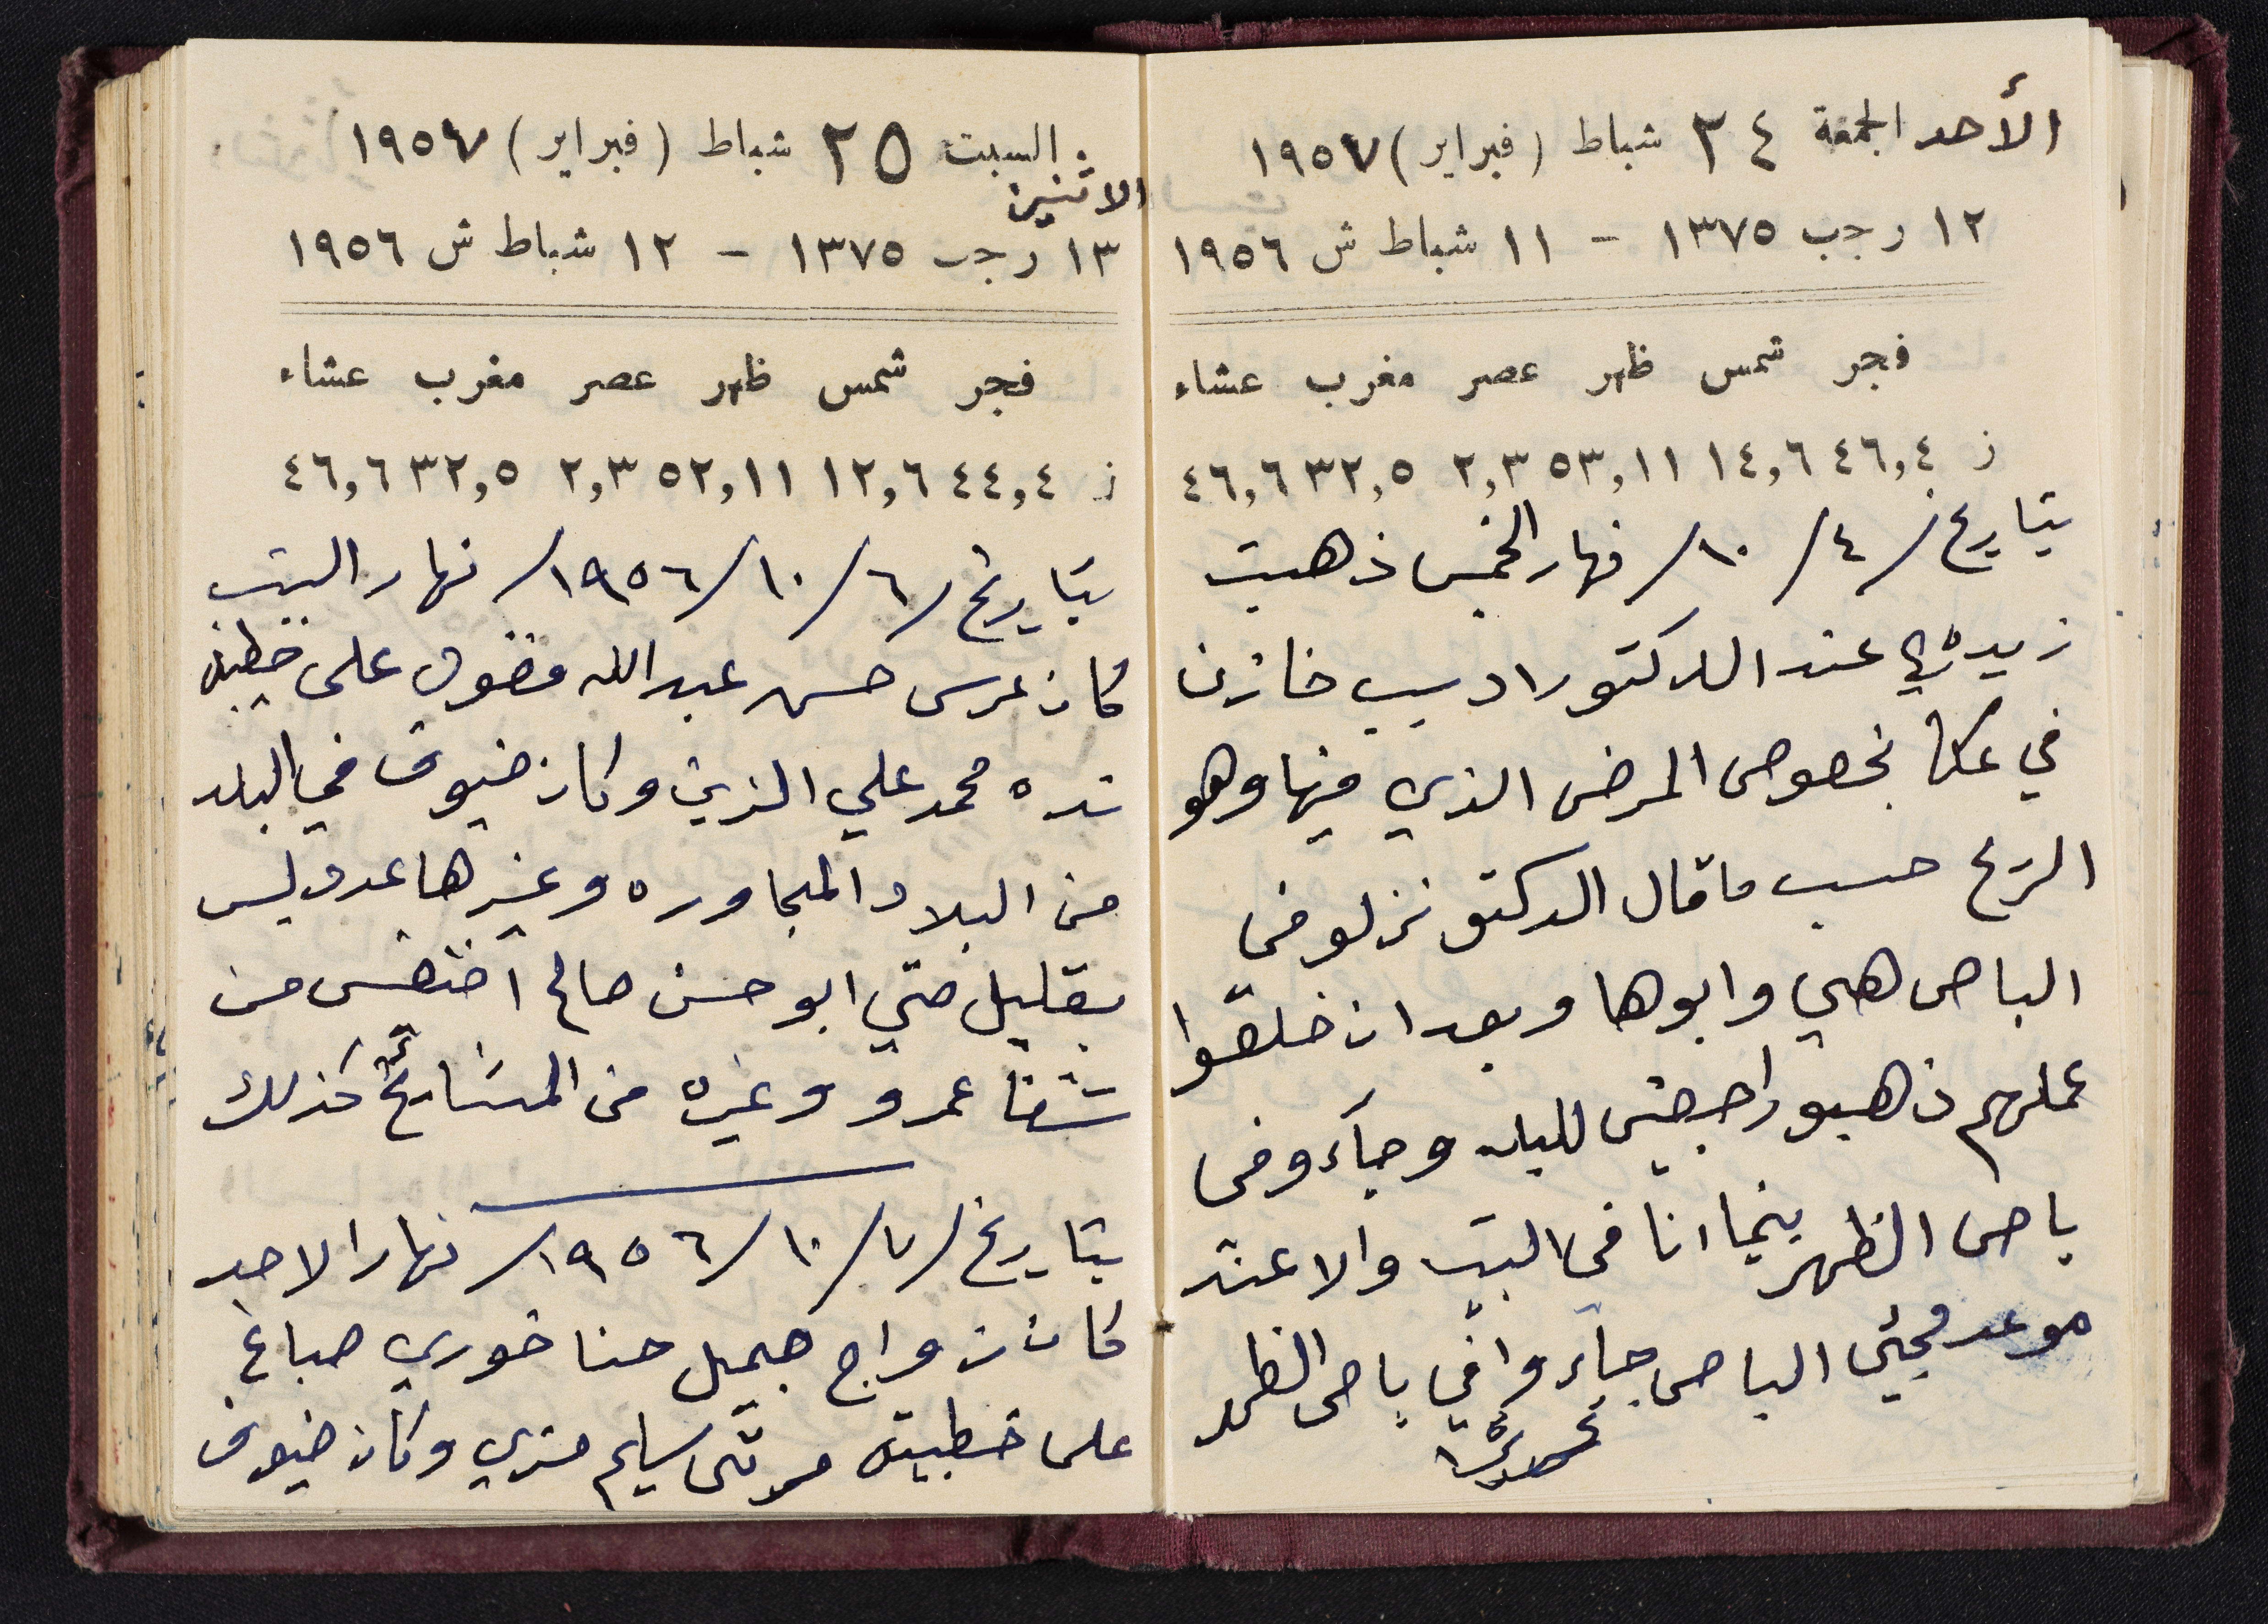 الأحد الجمعة ٢٤ شباط (فبراير) ١٩٥٧
١٢ رجب ١٣٧٥ - ١١ شباط ش ١٩٥٦
فجر شمس ظهر عصر مغرب عشاء
ز ٤٦,٤ ١٤,٦ ٥٣,١١ ٢,٣ ٣٢,٥ ٤٦,٦
بتاريخ /٤/١٠/ نهار الخمس ذهبت
عند الدكتور اديب خازن
في عكا بخصوص المرض الذي فيها وهو
الريح حسب ما قال الدكتو نزلو في
الباص هي وابوها وبعد ان خلقوا
عملهم ذهبو راجعين للبلد وجآءو في
باص الظهر بينما انا في البيت والا عند
موعد مجيئ الباص جآء وافي باص الظهر
السبت ٢٥ شباط (فبراير) ١٩٥٧
الاثنين
١٣ رجب ١٣٧٥ - ١٢ شباط ش ١٩٥٦
فجر شمس ظهر عصر مغرب عشاء
ز ٤٤,٤ ١٢,٦ ٥٢,١١ ٢,٣ ٣٢,٥ ٤٦,٦
بتاريخ /٦/١٠/١٩٥٦/ نهار السبت
كان عرس حسن عبدالله على خطيبته
محمد علي الزين وكان ضيوف في البلد
من البلاد المجاوره وغيرها عدد ليس
بقليل حتي ابو حسن صالح اخنفس من
شفا عمرو وغيره من المشايخ كذلك
بتاريخ /٧/١٠/١٩٥٦/ نهار الاحد
كان زواج جميل حنا خوري صباغ
على خطيبته سليم وكان ضيوف